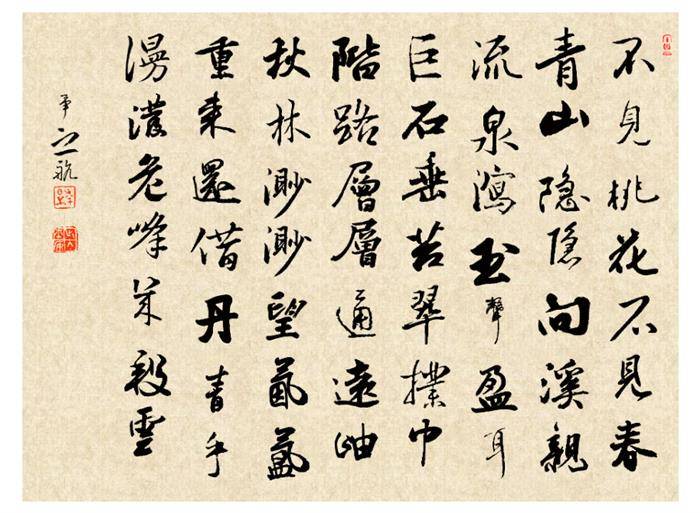 不見桃花不見春
青山隐隐向溪親
流泉瀉玉聲盈耳
巨石垂苔翠撲巾
階路層層通遠岫
秋林渺渺望氤氳
重來還借丹青手
漫危峰段雲
之航